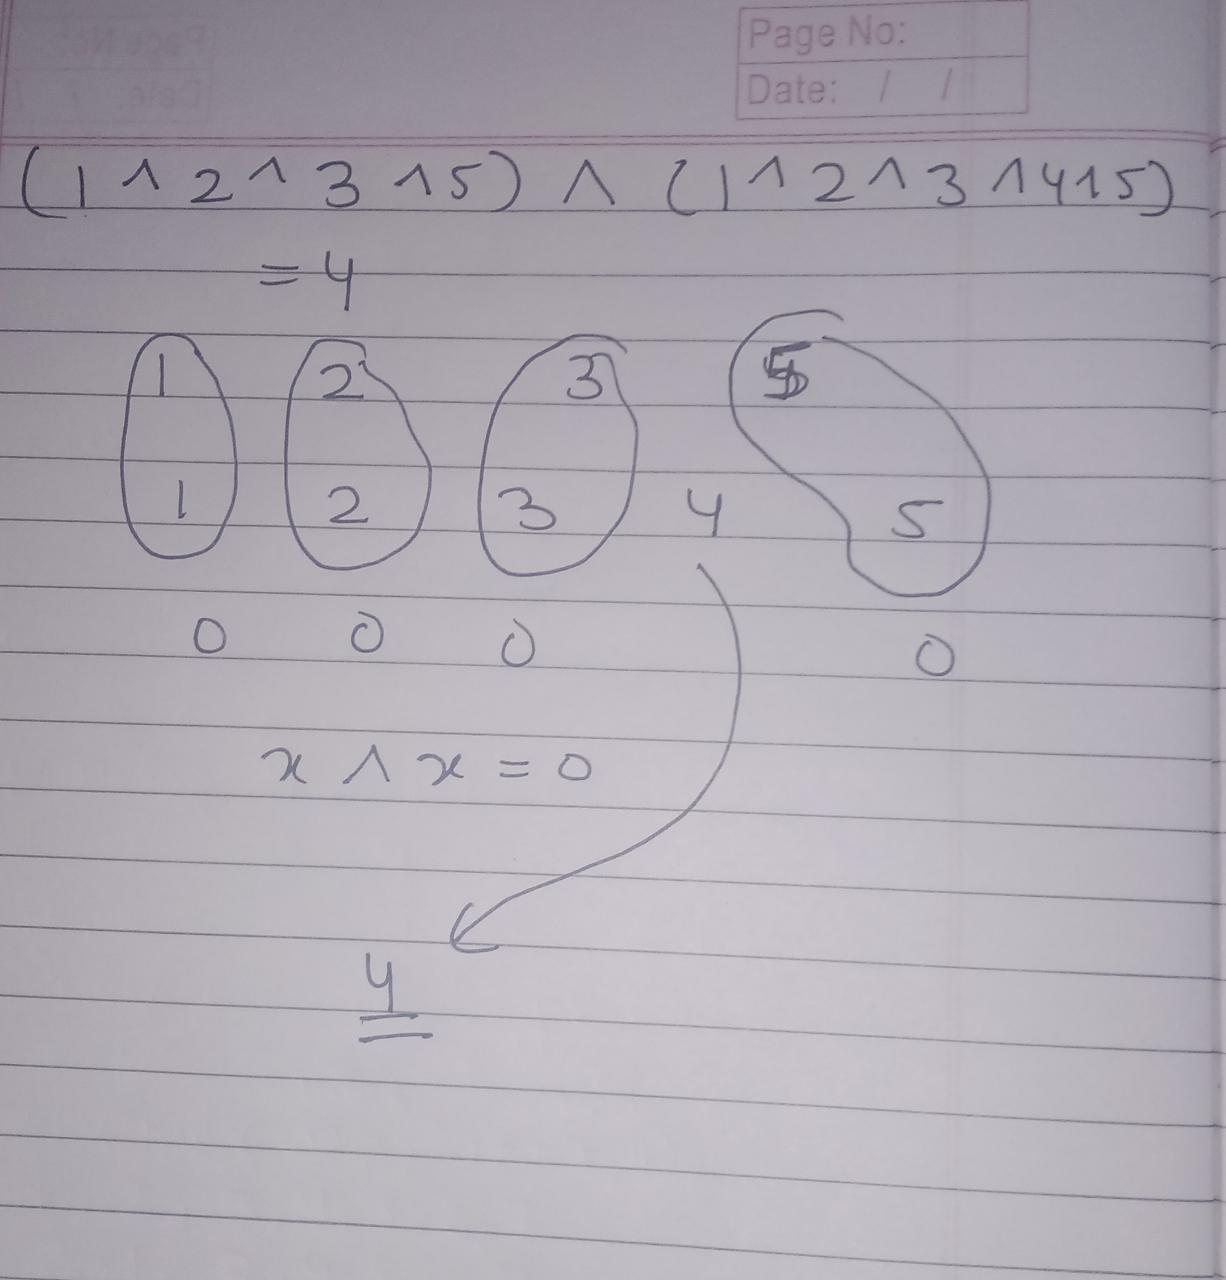 Page No:
Date: / /
(1 ^ 2 ^ 3 ^ 5) ^ (1 ^ 2 ^ 3 ^ 4 ^ 5)
= 4
1 2 3 5
1 2 3 4 5
0 0 0 0
x ^ x = 0
4